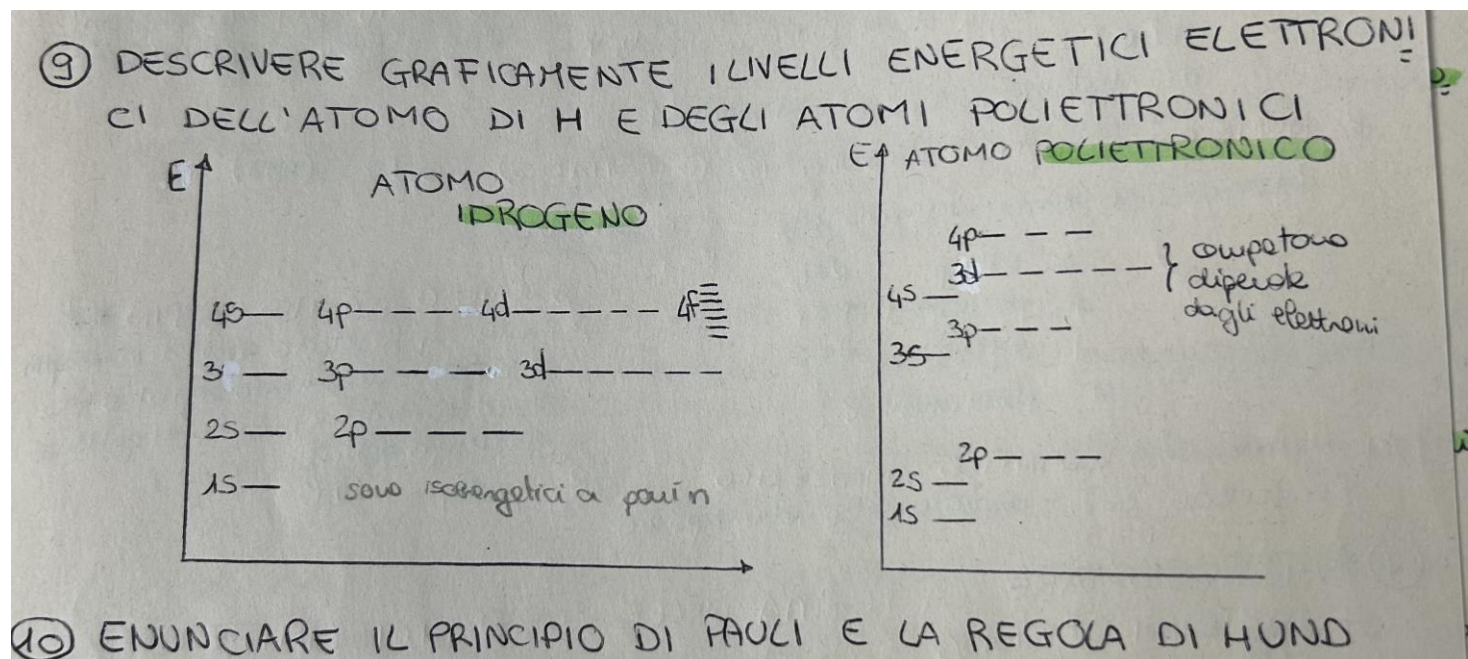 9 DESCRIVERE GRAFICAMENTE I LIVELLI ENERGETICI ELETTRONI
CI DELL'ATOMO DI H E DEGLI ATOMI POLIETTRONICI
E ATOMO
IDROGENO
4s 4p 4d 4f
3 3p 3d
2s 2p
1s sono isoenergetici a pari n
E ATOMO POLIETTRONICO
4p
3d
4s
3p
3s
2p
2s
1s
competono
dipende
dagli elettroni
10 ENUNCIARE IL PRINCIPIO DI PAULI E LA REGOLA DI HUND